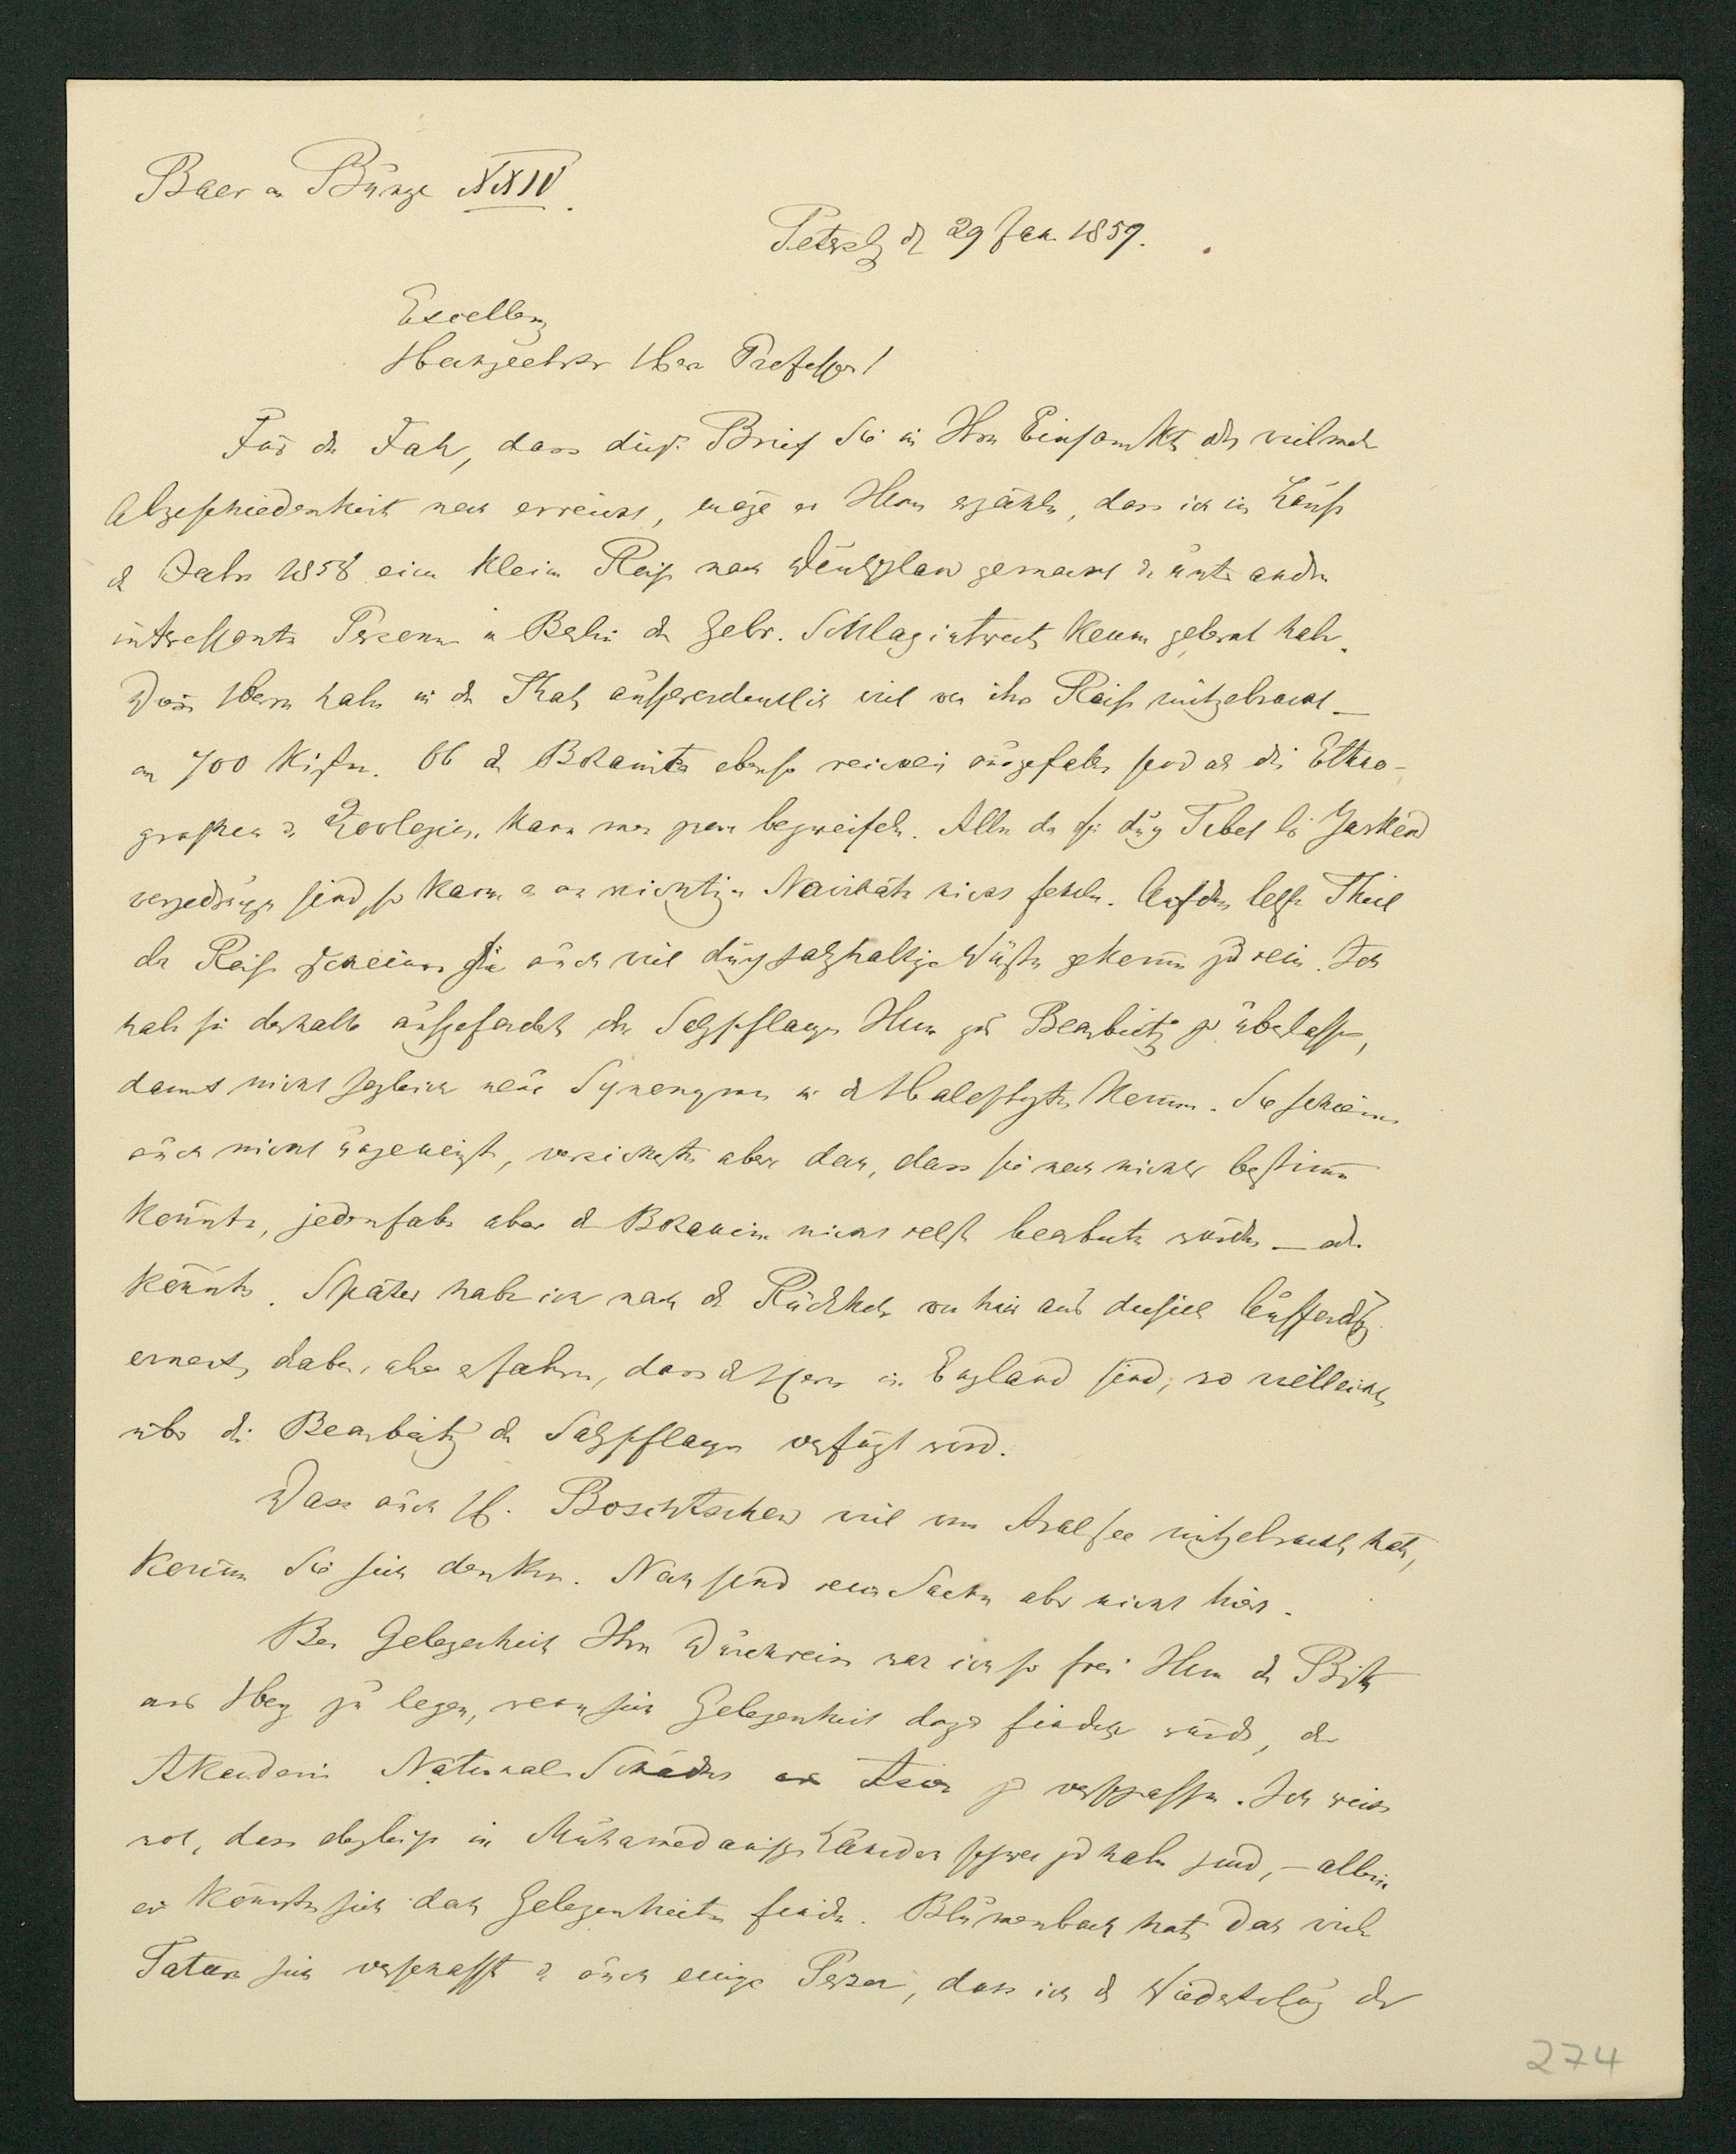 Baer an Bunge XXIV.
Petersb d 29 Jan. 1859.
Excellenz
Hochgeehrter Herr Professor!
Für den Fall, dass dieser Brief Sie in Ihrer Einsamkeit oder vielmehr
Abgeschiedenheit noch erreicht, möge er Ihnen erzählen, dass ich im Laufe
d Jahrs 1858 eine kleine Reise nach Deutschland gemacht u unter andern
interessanten Personen in Berlin die Gebr. Schlagintweit kennen gelernt habe.
Diese Herrn haben in der That ausserordentlich viel von ihrer Reise mitgebracht —
an 700 Kisten. Ob die Botanica ebenso reichlich ausgefallen sind als die Ethno-
graphica u Zoologica, kann man zwar bezweifeln. Allein da sie durch Tibet bis Jarkend
vorgedrungen sind, so kann es an wichtigen Novitäten nicht fehlen. Auf dem letzten Theil
der Reise scheinen sie auch viel durch salzhaltige Wüsten gekommen zu sein. Ich
habe sie deshalb aufgefordert die Salzpflanzen Ihnen zur Bearbeitung zu überlassen,
damit nicht sogleich neue Synonymen in die Halophyten kommen. Sie schienen
auch nicht ungeneigt, versicherten aber doch, dass sie noch nichts bestimmen
könnten, jedenfalls aber die Botanica nicht selbst bearbeiten würden — oder
könnten. Später habe ich nach der Rückkehr von hier aus dieselbe Aufforderung
erneut, dabei aber erfahren, dass die Herrn in England sind, wo vielleicht
über die Bearbeitung der Salzpflanzen verfügt wird.
Dass auch H. Borschtschow viel vom Aralsee mitgebracht hat,
können Sie sich denken. Noch sind seine Sachen aber nicht hier.
Bei Gelegenheit Ihrer Durchreise war ich so frei Ihnen die Bitte
ans Herz zu legen, wenn sich Gelegenheit dazu finden würde, der
Akademie National-Schädel aus Asien zu verschaffen. Ich weiss
wol, dass dergleichen in Muhamedanischen Ländern schwer zu haben sind, — allein
es könnte sich doch Gelegenheit finden. Blumenbach hat doch viele
Tataren sich verschafft u auch einige Perser, dass ich d Wiederholung der
274